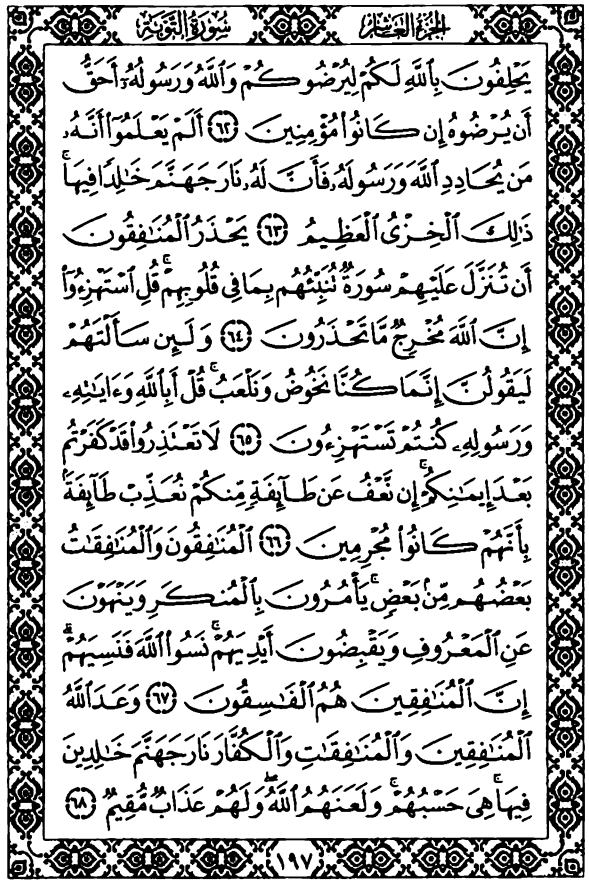 سُورَةُ التَّوْبَةِ الجُزْءُ العَاشِرُ
يَحْلِفُونَ بِٱللَّهِ لَكُمْ لِيُرْضُوكُمْ وَٱللَّهُ وَرَسُولُهُۥٓ أَحَقُّ
أَن يُرْضُوهُ إِن كَانُوا۟ مُؤْمِنِينَ ٦٢ أَلَمْ يَعْلَمُوٓا۟ أَنَّهُۥ
مَن يُحَادِدِ ٱللَّهَ وَرَسُولَهُۥ فَأَنَّ لَهُۥ نَارَ جَهَنَّمَ خَٰلِدًا فِيهَا ۚ
ذَٰلِكَ ٱلْخِزْىُ ٱلْعَظِيمُ ٦٣ يَحْذَرُ ٱلْمُنَٰفِقُونَ
أَن تُنَزَّلَ عَلَيْهِمْ سُورَةٌ تُنَبِّئُهُم بِمَا فِى قُلُوبِهِمْ ۚ قُلِ ٱسْتَهْزِءُوٓا۟
إِنَّ ٱللَّهَ مُخْرِجٌ مَّا تَحْذَرُونَ ٦٤ وَلَئِن سَأَلْتَهُمْ
لَيَقُولُنَّ إِنَّمَا كُنَّا نَخُوضُ وَنَلْعَبُ ۚ قُلْ أَبِٱللَّهِ وَءَايَٰتِهِۦ
وَرَسُولِهِۦ كُنتُمْ تَسْتَهْزِءُونَ ٦٥ لَا تَعْتَذِرُوا۟ قَدْ كَفَرْتُم
بَعْدَ إِيمَٰنِكُمْ ۚ إِن نَّعْفُ عَن طَآئِفَةٍ مِّنكُمْ نُعَذِّبْ طَآئِفَةًۢ
بِأَنَّهُمْ كَانُوا۟ مُجْرِمِينَ ٦٦ ٱلْمُنَٰفِقُونَ وَٱلْمُنَٰفِقَٰتُ
بَعْضُهُم مِّنۢ بَعْضٍ ۚ يَأْمُرُونَ بِٱلْمُنكَرِ وَيَنْهَوْنَ
عَنِ ٱلْمَعْرُوفِ وَيَقْبِضُونَ أَيْدِيَهُمْ ۚ نَسُوا۟ ٱللَّهَ فَنَسِيَهُمْ ۗ
إِنَّ ٱلْمُنَٰفِقِينَ هُمُ ٱلْفَٰسِقُونَ ٦٧ وَعَدَ ٱللَّهُ
ٱلْمُنَٰفِقِينَ وَٱلْمُنَٰفِقَٰتِ وَٱلْكُفَّارَ نَارَ جَهَنَّمَ خَٰلِدِينَ
فِيهَا ۚ هِىَ حَسْبُهُمْ ۚ وَلَعَنَهُمُ ٱللَّهُ ۖ وَلَهُمْ عَذَابٌ مُّقِيمٌ ٦٨
١٩٧